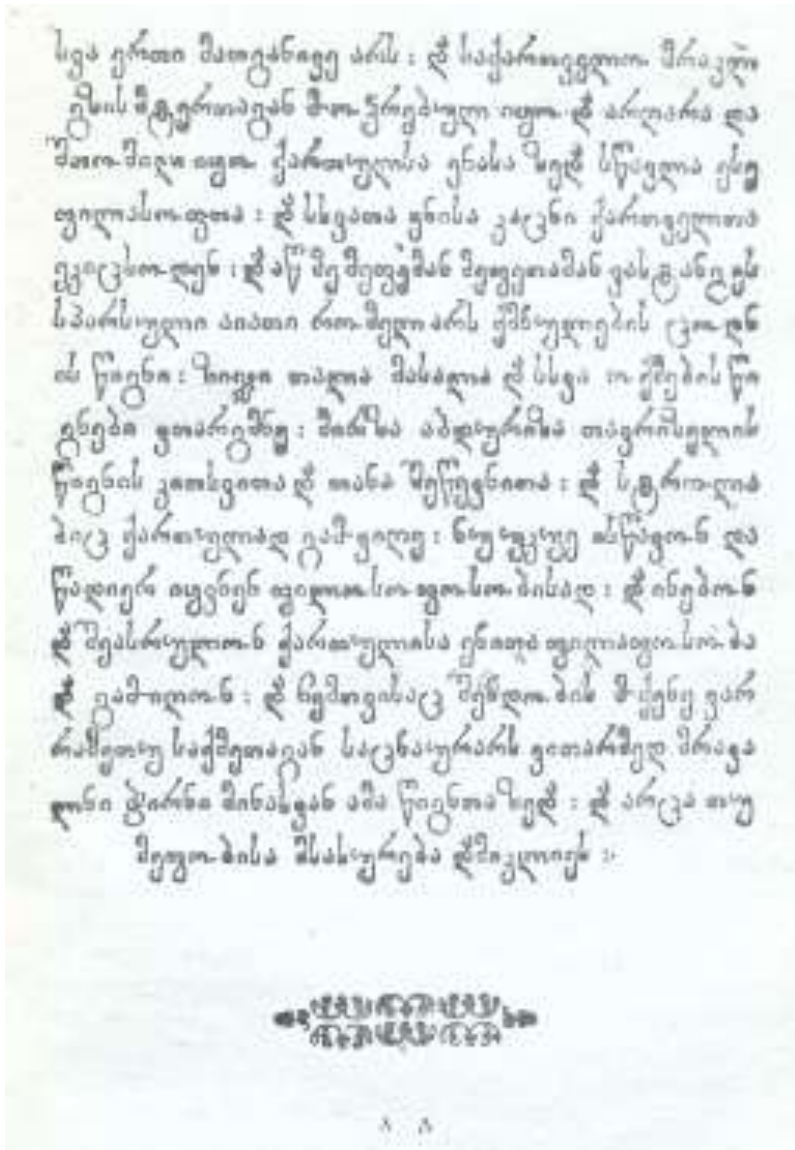 სვა ერთი მათგანივე არს : და საქართველო მრავლ
გზის მტერთაგან მოოჴრებულ იყო და არღარა და
შთომილ იყო ქართულსა ენასა ზედა სწავლა ესე
ფილასოფთა : და სხვათა ენისა კაცნი ქართველთა
ეკიცხოდენ : და მე მეფემან მეფეთამან ვახტანგ ეს
სპარსული აიათი რომელ არს ქმნულების ცოდნ
ის წიგნი : ზიჯი თალა მასალა და სხვა ოქმების წი
გნები ვთარგმნე : მირზა აბდურიზა თავრიზელის
წიგნის კითხვითა და თანა შეწევნითა : და სტროლია
ბიც ქართულად გამოვიღე : ნუ უკუე ისწავონ და
წადიერ იქმნენ ფილოსოფოსობისად : და ინებონ
და შეასრულონ ქართულისა ენითა ფილაფოსობა
და გამოიღონ : და ჩემთვისაც შენდობის მოქენე ვარ
რამეთუ საქმეთაგან საცნაურარს ვითარმედ მრავა
ლნი ჭირნი მინახვან ამა წიგნთა ზედა : და არცა თუ
მეფობისა მსახურება დამიკლიეს :